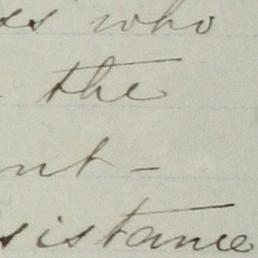 ss who
the
nt-
sistance